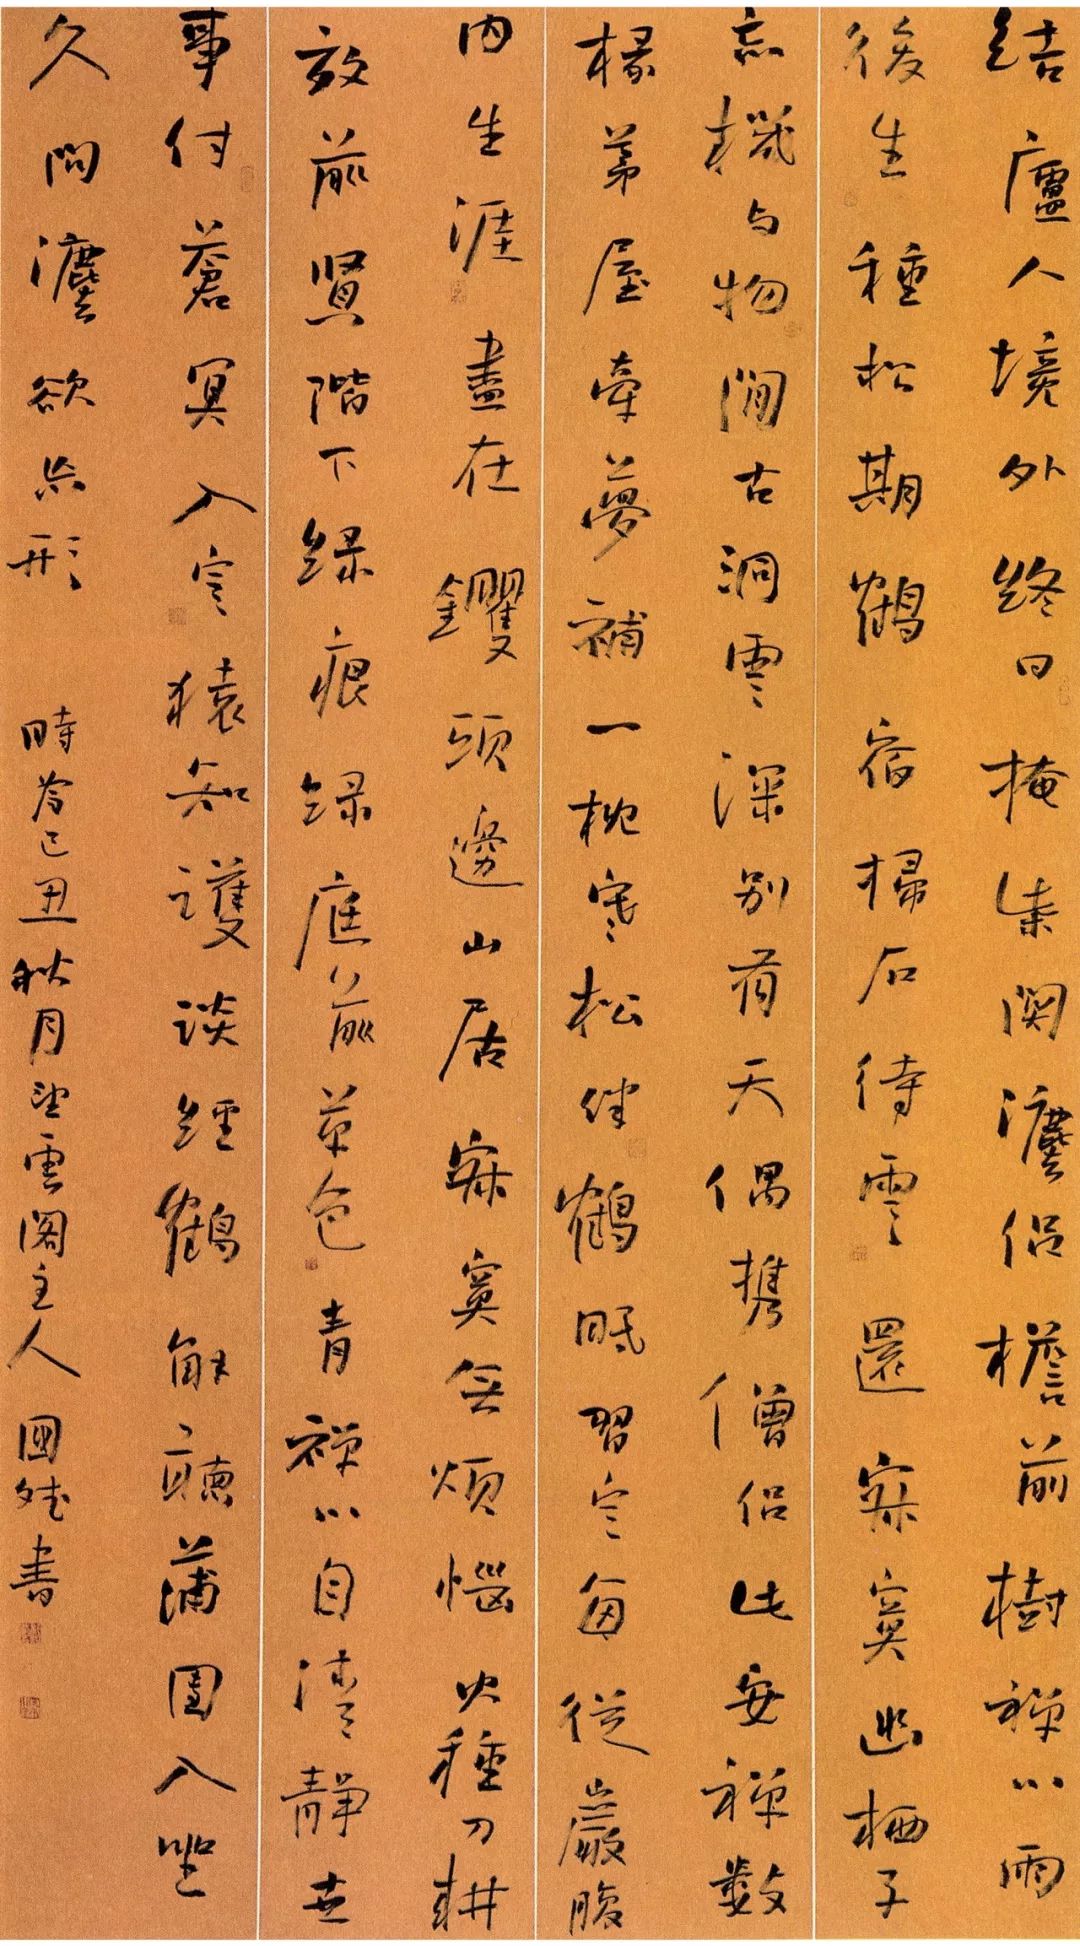 結廬人境外終日掩柴関塵侣檐前樹禪心雨
後生種松期鶴宿掃石待雲還寂寞幽栖子
忘機与物閒古洞雲深别有天偶携僧侣此安禪數
椽茅屋牽夢補一枕寒松伴鶴眠習定每從巖腹
内生涯盡在钁頭邊山居寂寞無煩惱火種刀耕
效前賢階下綠痕綠庭前草色青禪心自清静世
事付蒼冥入定猿知護談經鶴解聽蒲團入坐
久問塵欲忘形 時為己丑秋月望雲閣主人國斌書